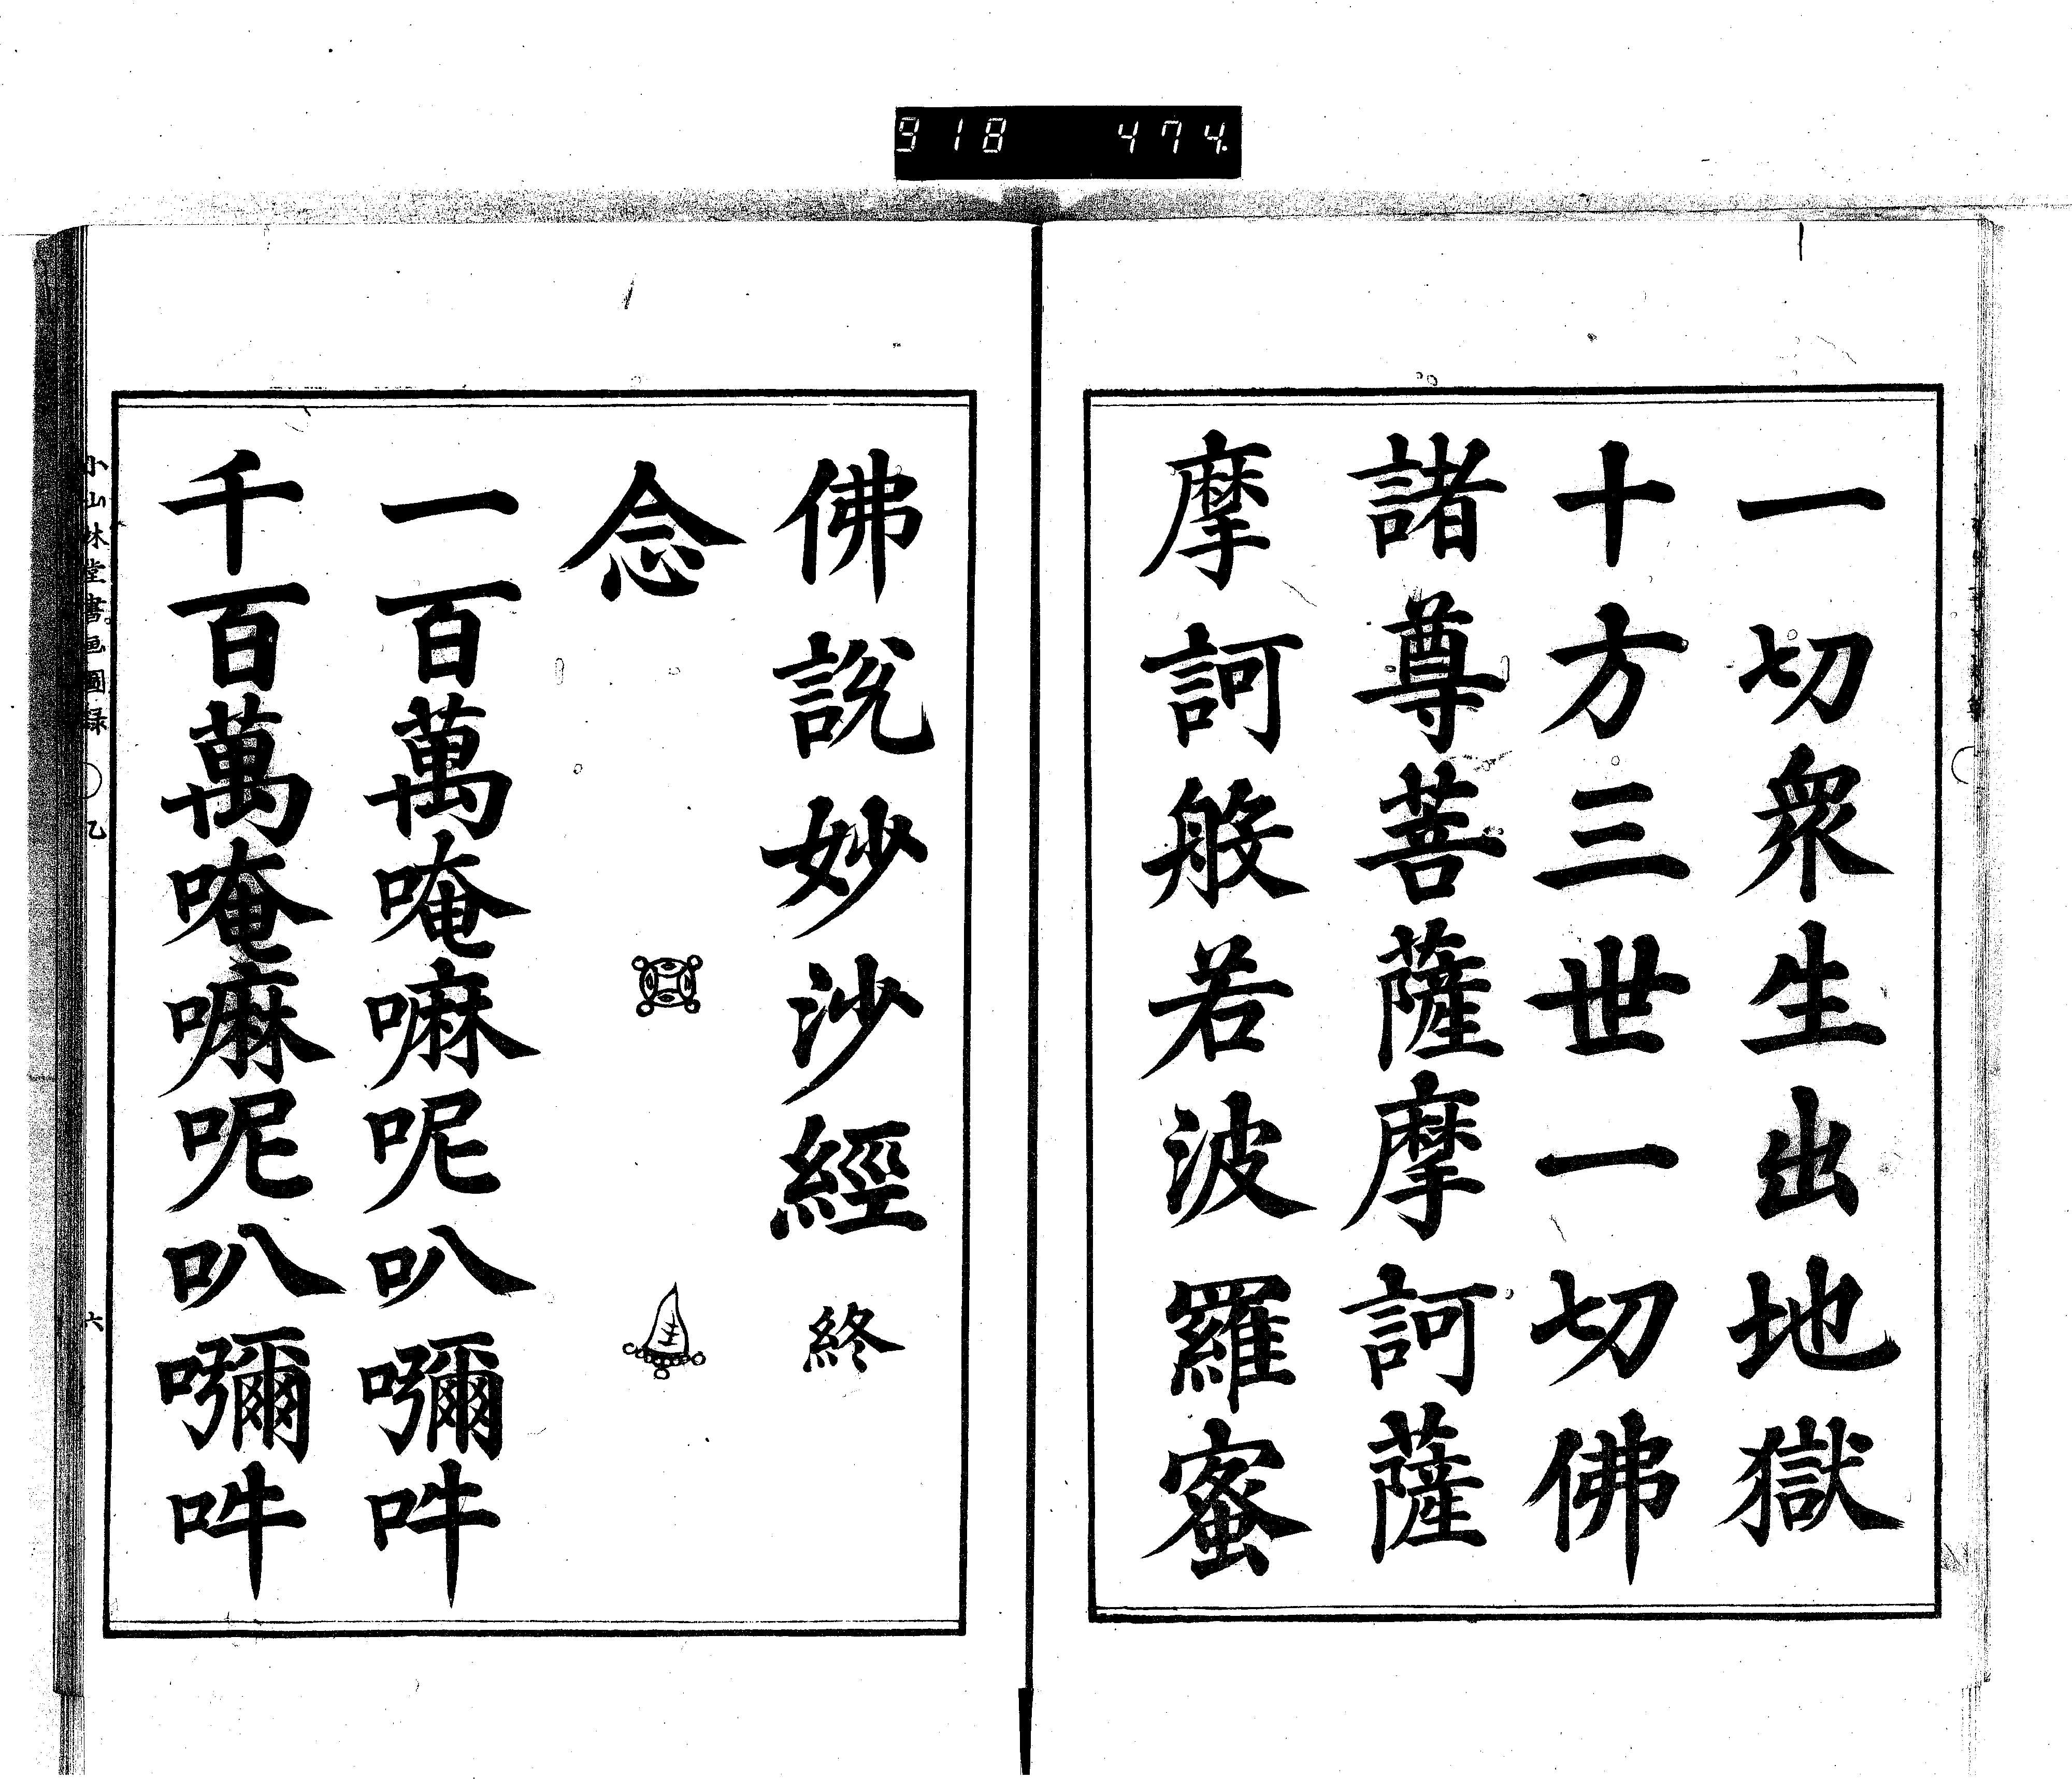 918 474.
一切衆生出地獄
十方三世一切佛
諸尊菩薩摩訶薩
摩訶般若波羅蜜
佛說妙沙經 終
念
一百萬唵嘛呢叭嚩吽
千百萬唵嘛呢叭嚩吽
小山林堂書画圖録 乙 六